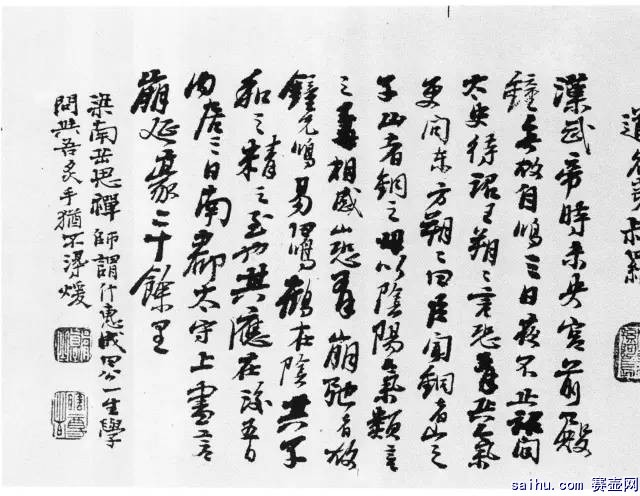 漢武帝時未央宮前殿
鐘無故自鳴三日夜不止詔問
太史待詔王朔々言恐有兵氣
更問東方朔々曰臣聞銅者山之
子山者銅之母以陰陽氣類言
之子母相感山恐有崩弛者故
鐘先鳴易曰鳴鶴在陰其子
和之精之至也其應在後五日
內居三日南郡太守上書言
崩延袤二十餘里
梁南岳思禪師謂什惠成曰公一生學
問與吾炙手猶不得煖
saihu.com 赛壶网